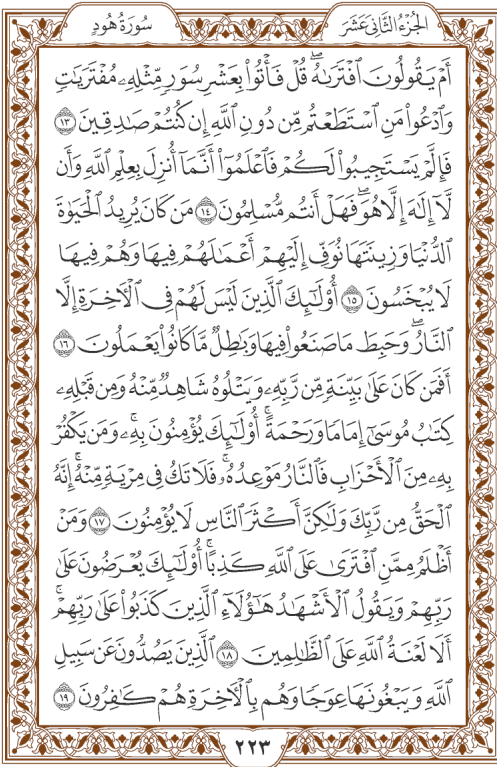 الجُزْءُ الثَّانِي عَشَرَ
سُورَةُ هُودٍ
أَمْ يَقُولُونَ ٱفْتَرَىٰهُۖ قُلْ فَأْتُوا۟ بِعَشْرِ سُوَرٍ مِّثْلِهِۦ مُفْتَرَيَـٰتٍ
وَٱدْعُوا۟ مَنِ ٱسْتَطَعْتُم مِّن دُونِ ٱللَّهِ إِن كُنتُمْ صَـٰدِقِينَ ١٣
فَإِلَّمْ يَسْتَجِيبُوا۟ لَكُمْ فَٱعْلَمُوٓا۟ أَنَّمَآ أُنزِلَ بِعِلْمِ ٱللَّهِ وَأَن
لَّآ إِلَـٰهَ إِلَّا هُوَۖ فَهَلْ أَنتُم مُّسْلِمُونَ ١٤ مَن كَانَ يُرِيدُ ٱلْحَيَوٰةَ
ٱلدُّنْيَا وَزِينَتَهَا نُوَفِّ إِلَيْهِمْ أَعْمَـٰلَهُمْ فِيهَا وَهُمْ فِيهَا
لَا يُبْخَسُونَ ١٥ أُو۟لَـٰٓئِكَ ٱلَّذِينَ لَيْسَ لَهُمْ فِى ٱلْـَٔاخِرَةِ إِلَّا
ٱلنَّارُۖ وَحَبِطَ مَا صَنَعُوا۟ فِيهَا وَبَـٰطِلٌ مَّا كَانُوا۟ يَعْمَلُونَ ١٦
أَفَمَن كَانَ عَلَىٰ بَيِّنَةٍ مِّن رَّبِّهِۦ وَيَتْلُوهُ شَاهِدٌ مِّنْهُ وَمِن قَبْلِهِۦ
كِتَـٰبُ مُوسَىٰٓ إِمَامًا وَرَحْمَةًۚ أُو۟لَـٰٓئِكَ يُؤْمِنُونَ بِهِۦۚ وَمَن يَكْفُرْ
بِهِۦ مِنَ ٱلْأَحْزَابِ فَٱلنَّارُ مَوْعِدُهُۥۚ فَلَا تَكُ فِى مِرْيَةٍ مِّنْهُۚ إِنَّهُ
ٱلْحَقُّ مِن رَّبِّكَ وَلَـٰكِنَّ أَكْثَرَ ٱلنَّاسِ لَا يُؤْمِنُونَ ١٧ وَمَنْ
أَظْلَمُ مِمَّنِ ٱفْتَرَىٰ عَلَى ٱللَّهِ كَذِبًاۚ أُو۟لَـٰٓئِكَ يُعْرَضُونَ عَلَىٰ
رَبِّهِمْ وَيَقُولُ ٱلْأَشْهَـٰدُ هَـٰٓؤُلَآءِ ٱلَّذِينَ كَذَبُوا۟ عَلَىٰ رَبِّهِمْۚ
أَلَا لَعْنَةُ ٱللَّهِ عَلَى ٱلظَّـٰلِمِينَ ١٨ ٱلَّذِينَ يَصُدُّونَ عَن سَبِيلِ
ٱللَّهِ وَيَبْغُونَهَا عِوَجًا وَهُم بِٱلْـَٔاخِرَةِ هُمْ كَـٰفِرُونَ ١٩
٢٢٣